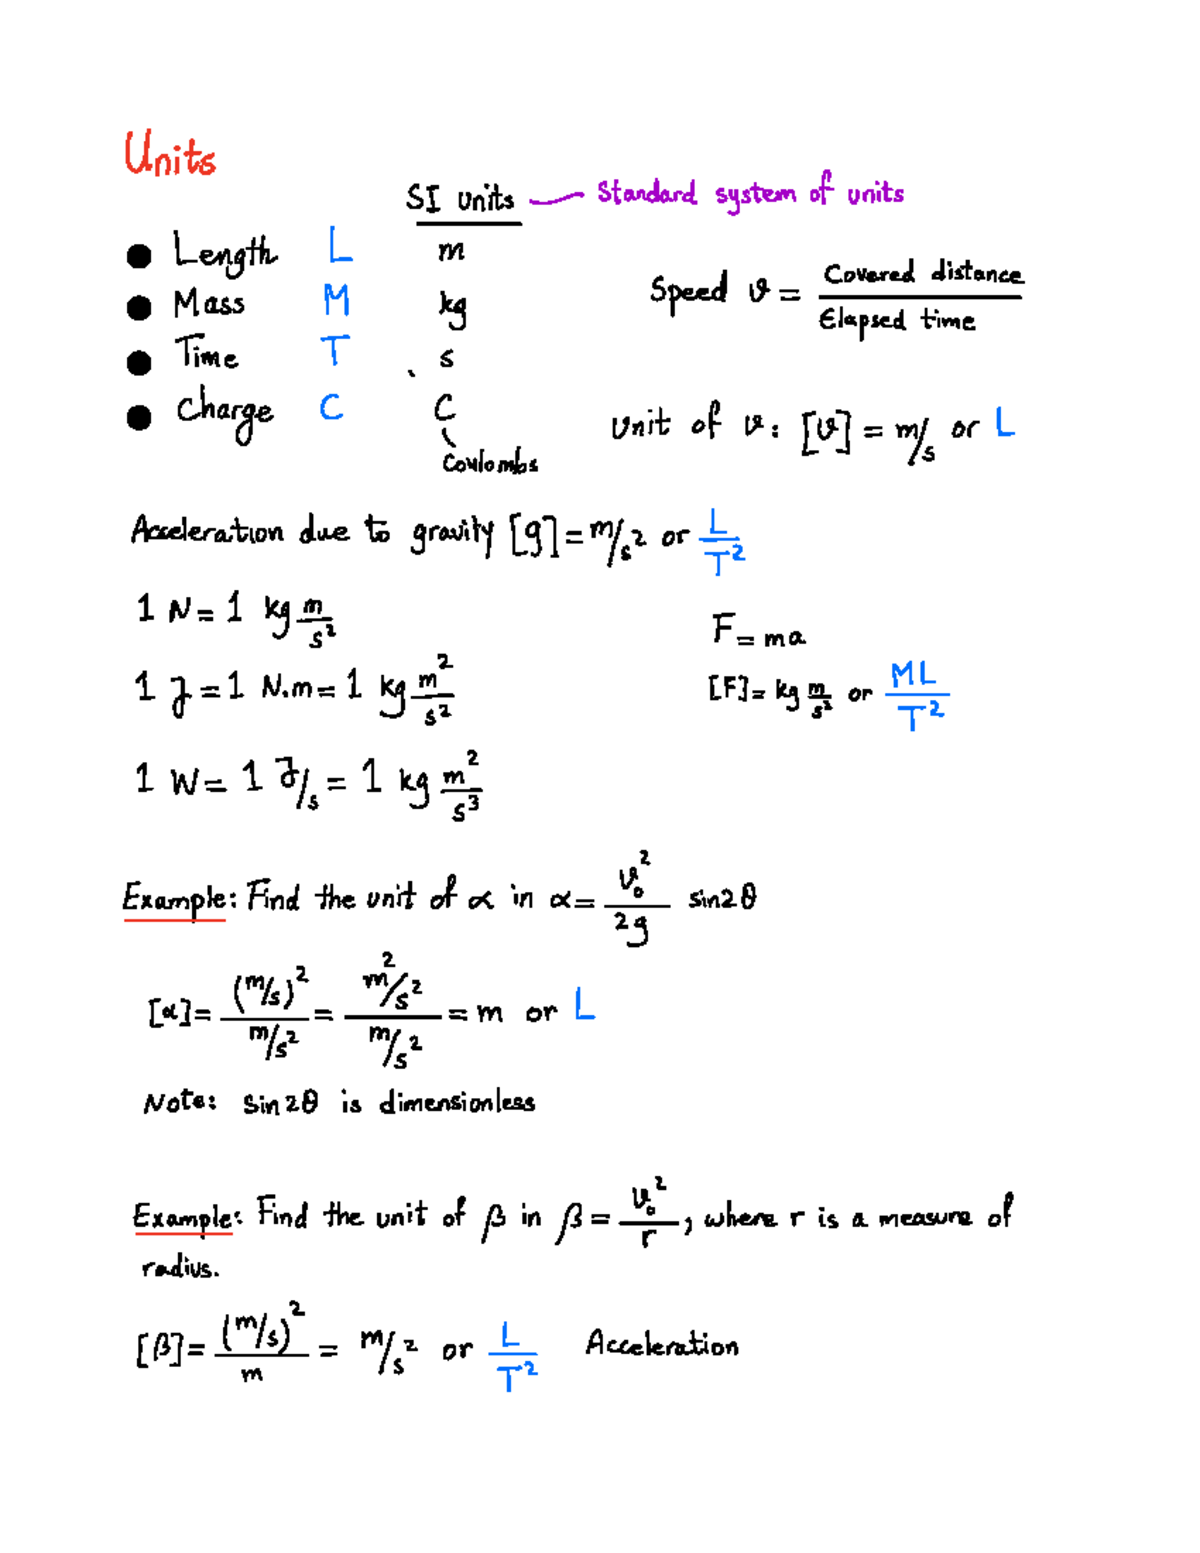 Units
SI units — Standard system of units
● Length L m
● Mass M kg
● Time T s
● Charge C C
Coulombs
Speed v = Covered distance / Elapsed time
Unit of v: [v] = m/s or L
Acceleration due to gravity [g] = m/s² or L/T²
1 N = 1 kg m/s²
F = ma
1 J = 1 N.m = 1 kg m²/s²
[F] = kg m/s² or ML/T²
1 W = 1 J/s = 1 kg m²/s³
Example: Find the unit of α in α = v₀²/2g sin2θ
[α] = (m/s)²/m/s² = m²/s²/m/s² = m or L
Note: sin2θ is dimensionless
Example: Find the unit of β in β = v₀²/r, where r is a measure of
radius.
[β] = (m/s)²/m = m/s² or L/T² Acceleration